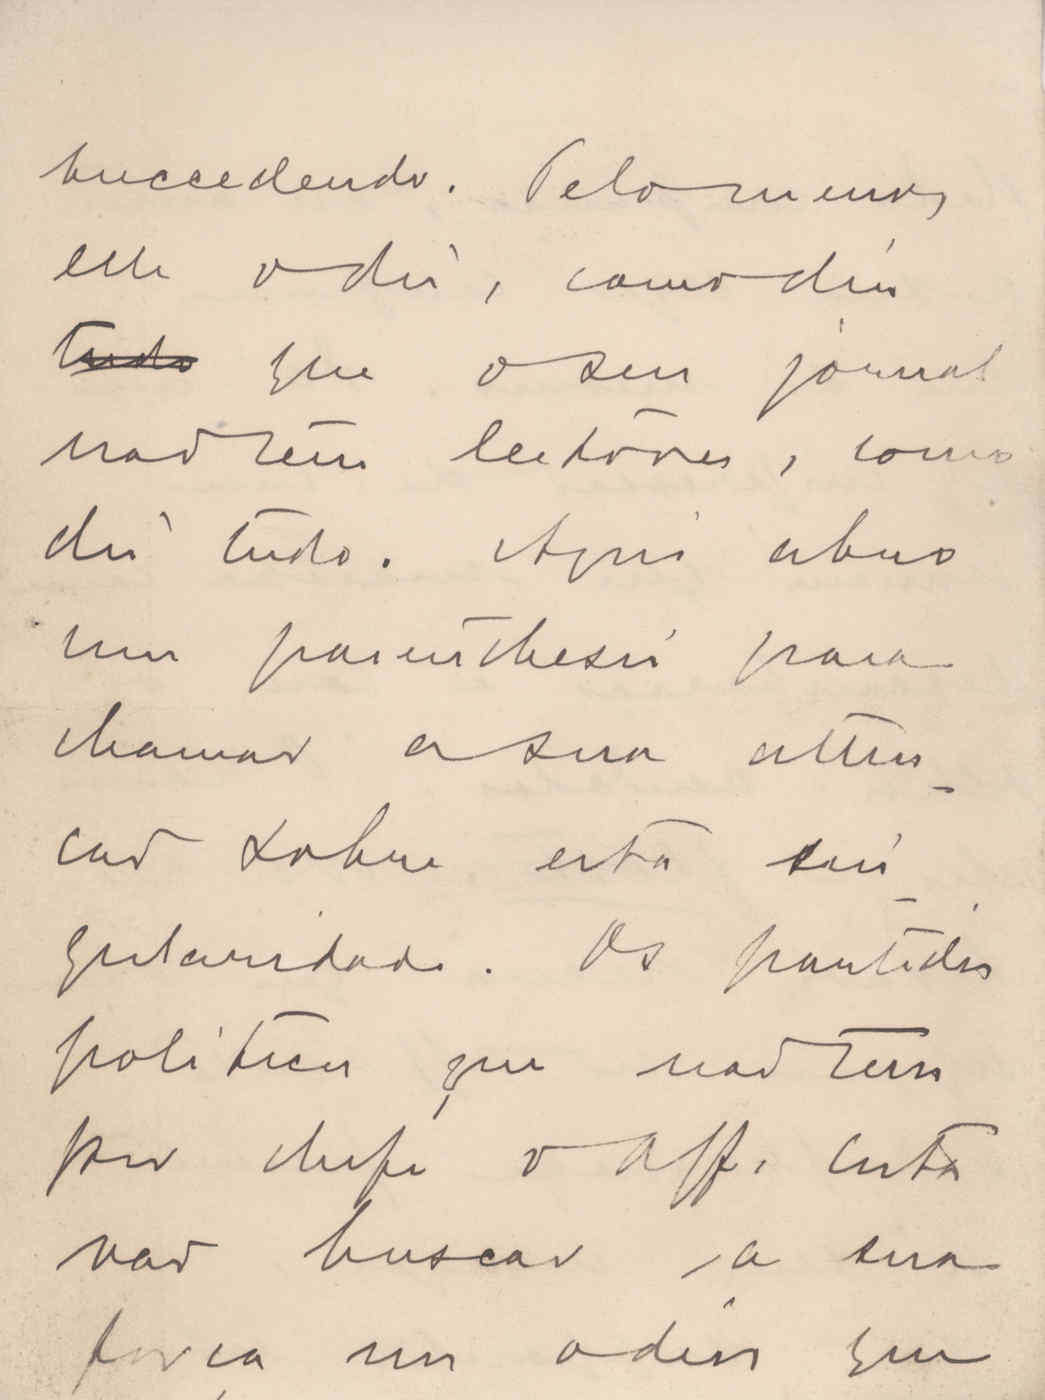 succedendo. Pelo menos,
elle o diz, como diz
tudo que o seu jornal
não tem leitores, como
diz tudo. Aqui abro
um parenthesis para
chamar a sua atten-
ção sobre esta sin-
gularidade. Os partidos
politicos que não tem
por chefe o Aff. Costa
vão buscar a sua
força no odio que